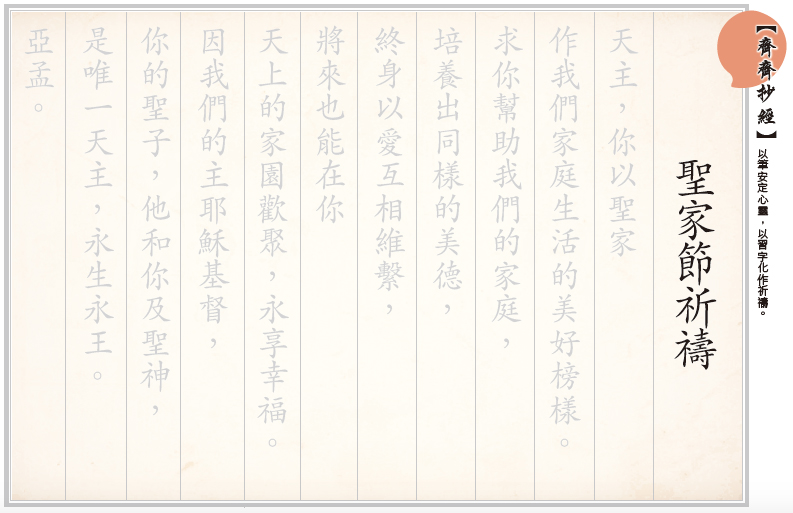 【齊齊抄經】 以筆安定心靈，以習字化作祈禱。
聖家節祈禱
天主，你以聖家
作我們家庭生活的美好榜樣。
求你幫助我們的家庭，
培養出同樣的美德，
終身以愛互相維繫，
將來也能在你
天上的家園歡聚，永享幸福。
因我們的主耶穌基督，
你的聖子，他和你及聖神，
是唯一天主，永生永王。
亞孟。